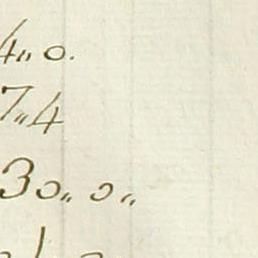 4,, 0.
7,, 4
30,, 0,,